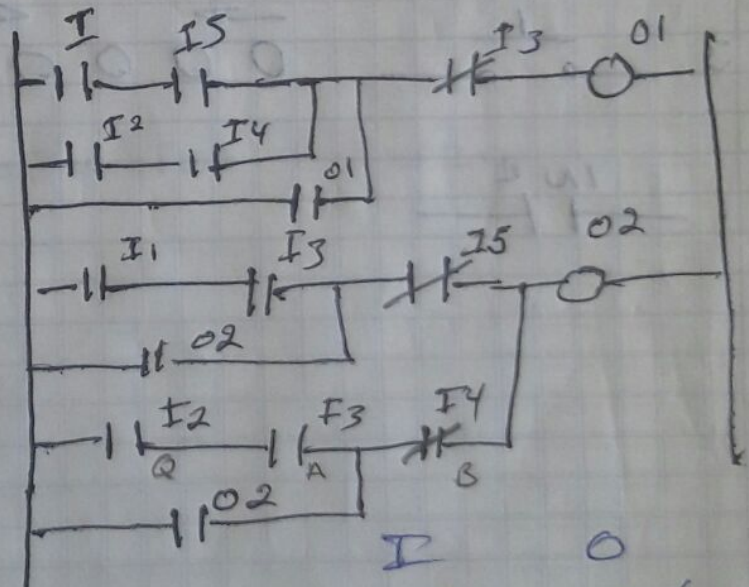 I I5 I3 O1
I2 I4
O1
I1 I3 I5 O2
O2
I2 I3 I4
Q A B
O2
I O